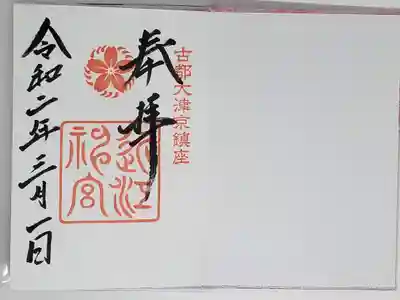 古都大津京鎮座
奉拝
近江神宮
令和二年三月一日